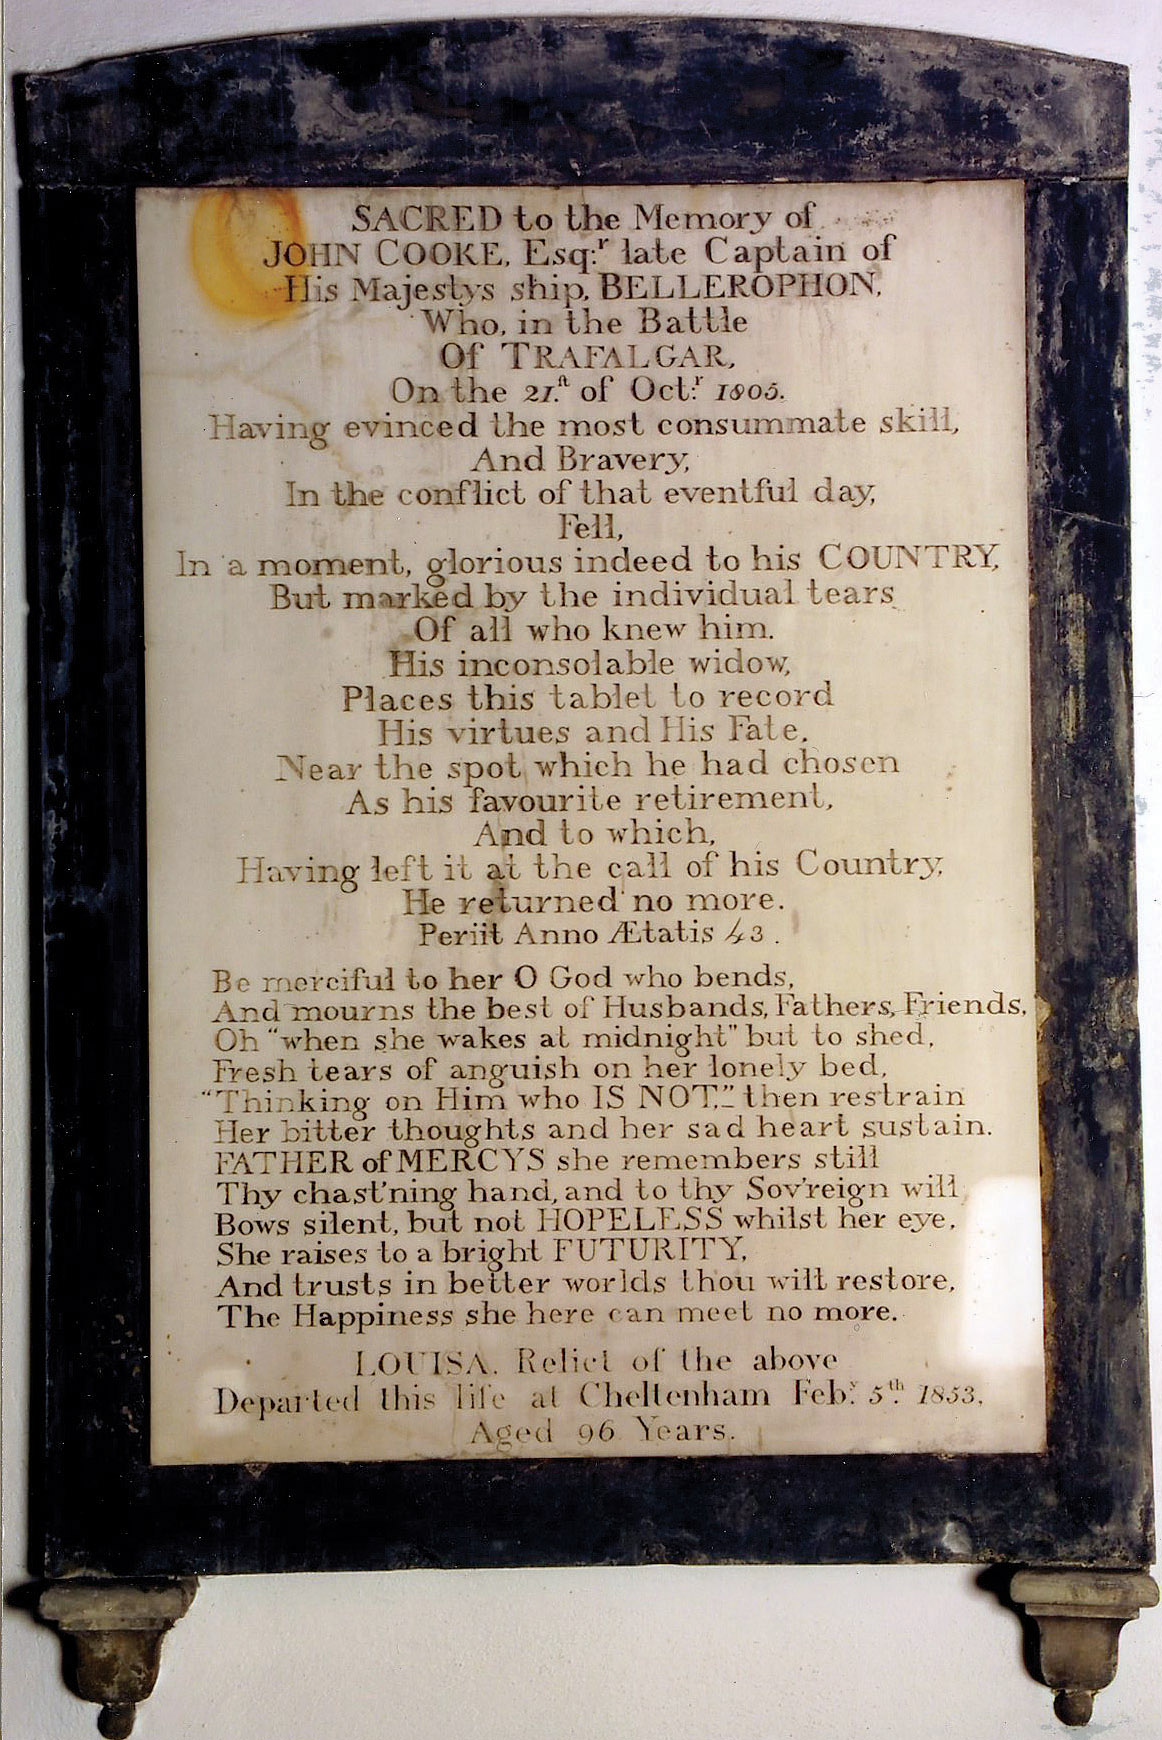 SACRED to the Memory of
JOHN COOKE, Esq:r late Captain of
His Majestys ship, BELLEROPHON,
Who, in the Battle
Of TRAFALGAR,
On the 21.st of Oct:r 1805.
Having evinced the most consummate skill,
And Bravery,
In the conflict of that eventful day,
Fell,
In a moment, glorious indeed to his COUNTRY,
But marked by the individual tears
Of all who knew him.
His inconsolable widow,
Places this tablet to record
His virtues and His Fate,
Near the spot which he had chosen
As his favourite retirement,
And to which,
Having left it at the call of his Country,
He returned no more.
Periit Anno Ætatis 43.
Be merciful to her O God who bends,
And mourns the best of Husbands, Fathers, Friends,
Oh "when she wakes at midnight" but to shed,
Fresh tears of anguish on her lonely bed,
"Thinking on Him who IS NOT," then restrain
Her bitter thoughts and her sad heart sustain.
FATHER of MERCYS she remembers still
Thy chast'ning hand, and to thy Sov'reign will
Bows silent, but not HOPELESS whilst her eye,
She raises to a bright FUTURITY,
And trusts in better worlds thou wilt restore,
The Happiness she here can meet no more.
LOUISA, Relict of the above
Departed this life at Cheltenham Feb:y 5th. 1853,
Aged 96 Years.